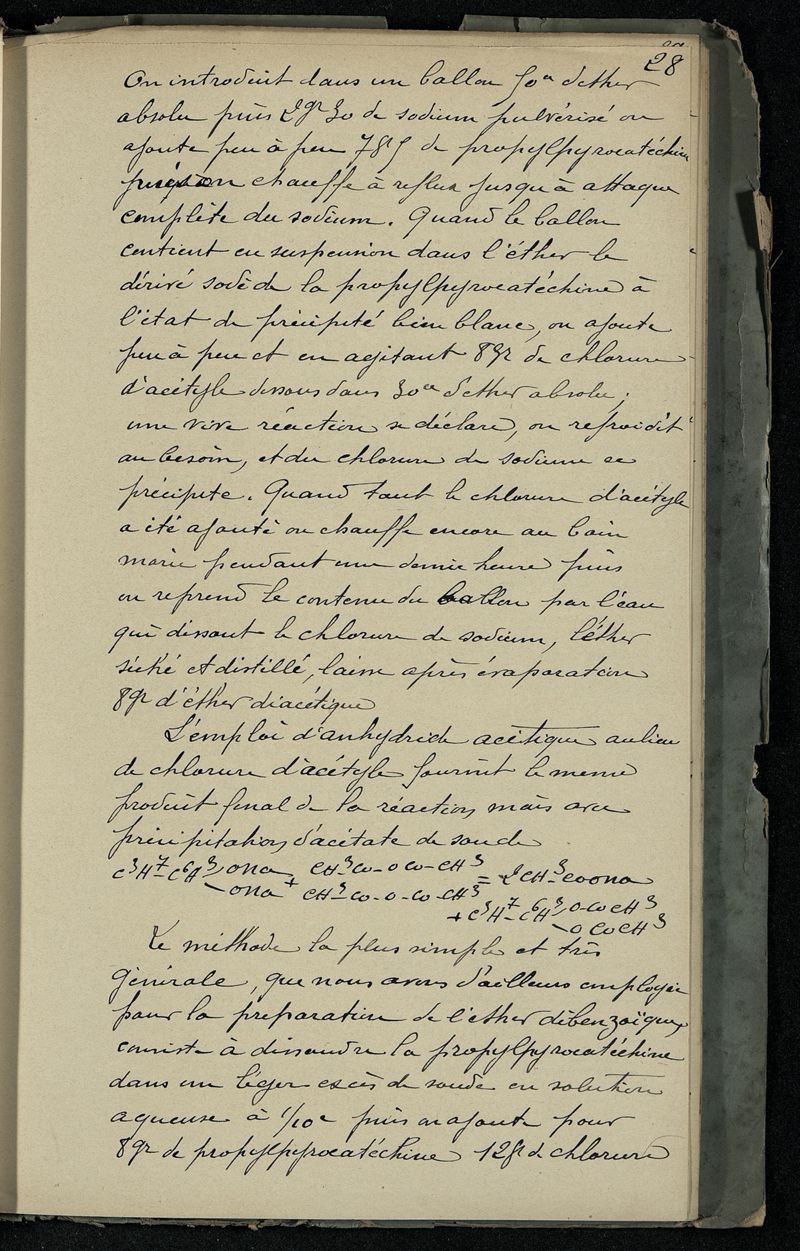 28
On introduit dans un ballon 50cc d'ether
absolu puis 2gr 30 de sodium pulvérisé on
ajoute peu à peu 7gr5 de propylpyrocatéchine
puis on chauffe à reflux jusqu'à attaque
complète du sodium. Quand le ballon
contient en suspension dans l'éther le
dérivé sodé de la propylpyrocatéchine à
l'état de précipité bien blanc, on ajoute
peu à peu et en agitant 8gr de chlorure
d'acétyle dissous dans 30cc d'ether absolu ;
une vive réaction se déclare, on refroidit
au besoin, et du chlorure de sodium se
précipite. Quand tout le chlorure d'acétyle
a été ajouté on chauffe encore au bain
marie pendant une demie heure puis
on reprend le contenu du ballon par l'eau
qui dissout le chlorure de sodium, l'éther
séché et distillé, laisse après évaporation
8gr d'éther diacétique
L'emploi d'anhydride acétique au lieu
de chlorure d'acétyle fournit le meme
produit final de la réaction mais avec
précipitation d'acétate de soude
C3H7-C6H3 ONa + CH3CO-OCO-CH3 = 2CH3-COONa
-ONa CH3-CO-O-CO-CH3
+ C3H7-C6H3 O-COCH3
-OCOCH3
Le méthode la plus simple et très
générale, que nous avons d'ailleurs employée
pour la préparation de l'ether dibenzoïque,
consiste à dissoudre la propylpyrocatéchine
dans un léger excès de soude en solution
aqueuse à 1/10e puis on ajoute pour
8gr de propylpyrocatéchine 12gr de chlorure